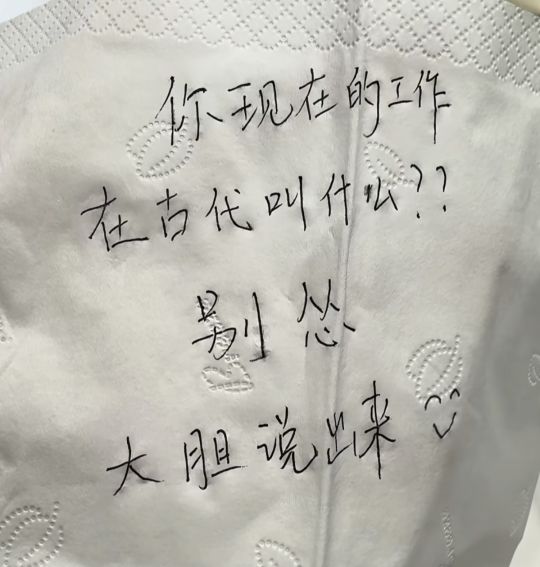 你现在的工作
在古代叫什么??
别怂
大胆说出来